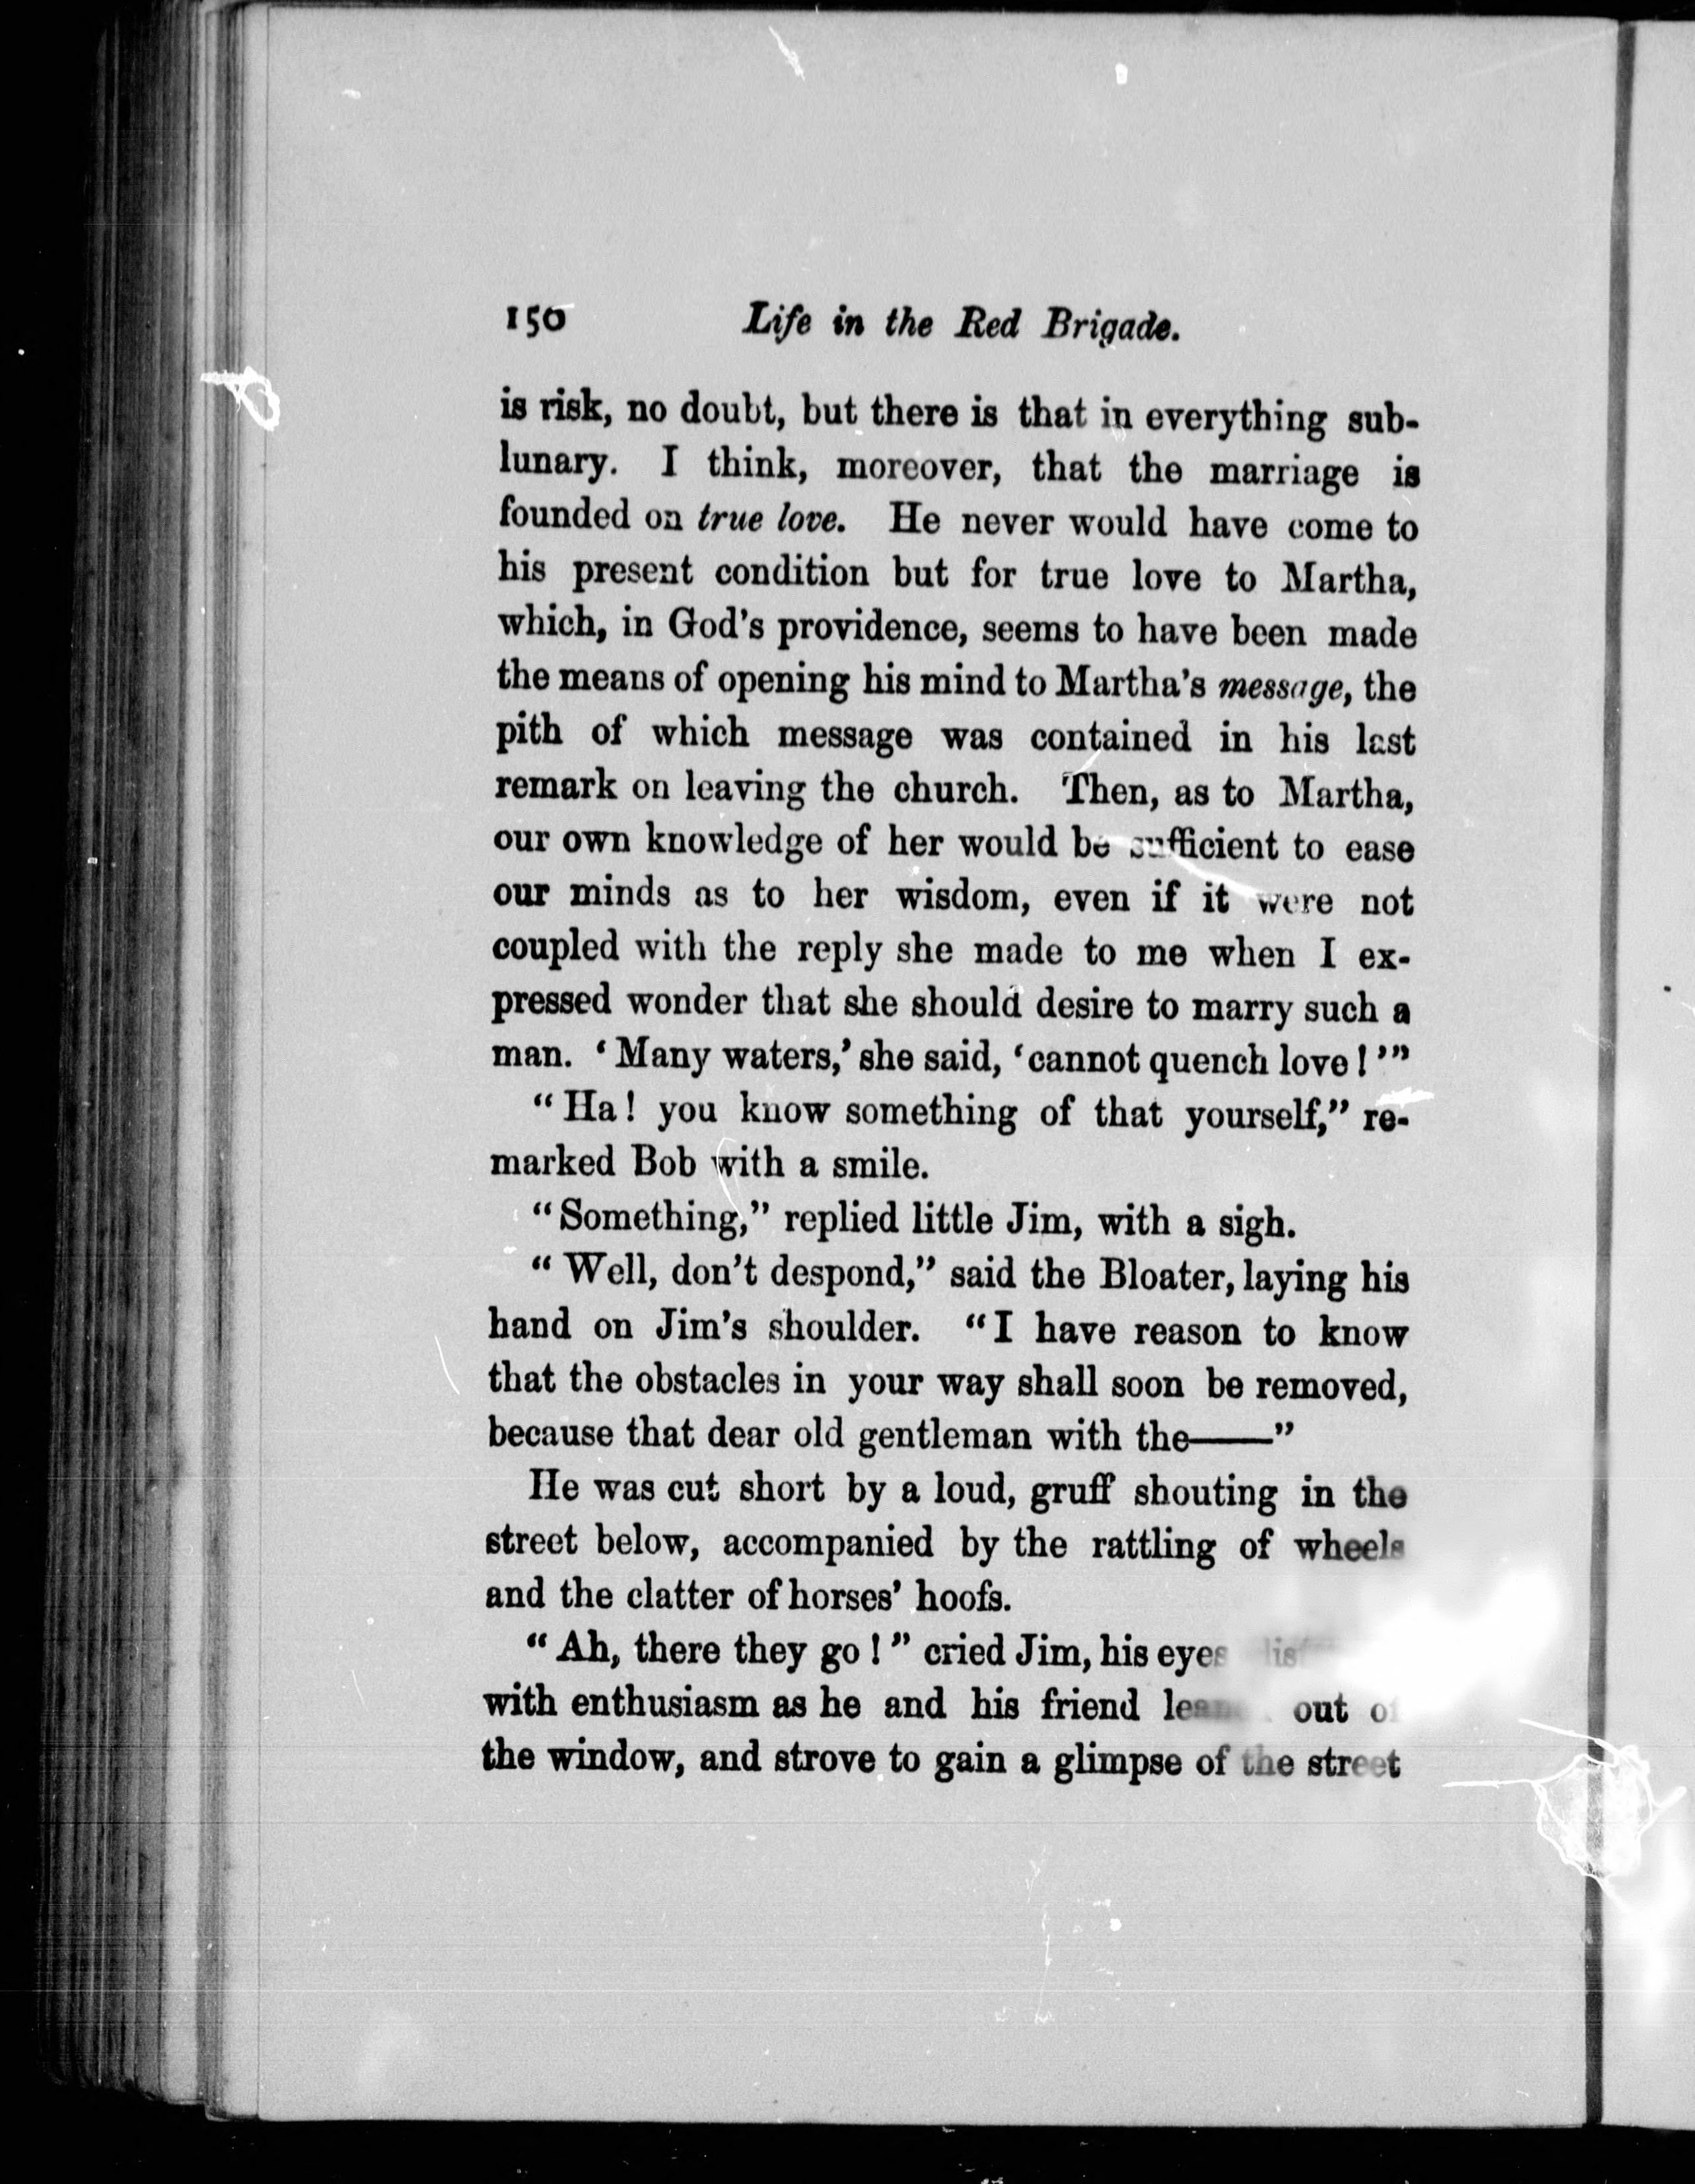 150 Life in the Red Brigade.
is risk, no doubt, but there is that in everything sub-
lunary. I think, moreover, that the marriage is
founded on true love. He never would have come to
his present condition but for true love to Martha,
which, in God's providence, seems to have been made
the means of opening his mind to Martha's message, the
pith of which message was contained in his last
remark on leaving the church. Then, as to Martha,
our own knowledge of her would be sufficient to ease
our minds as to her wisdom, even if it were not
coupled with the reply she made to me when I ex-
pressed wonder that she should desire to marry such a
man. ‘Many waters,’ she said, ‘cannot quench love!’”
“Ha! you know something of that yourself,” re-
marked Bob with a smile.
“Something,” replied little Jim, with a sigh.
“Well, don't despond,” said the Bloater, laying his
hand on Jim's shoulder. “I have reason to know
that the obstacles in your way shall soon be removed,
because that dear old gentleman with the——”
He was cut short by a loud, gruff shouting in the
street below, accompanied by the rattling of wheels
and the clatter of horses' hoofs.
“Ah, there they go!” cried Jim, his eyes
with enthusiasm as he and his friend out of
the window, and strove to gain a glimpse of the street